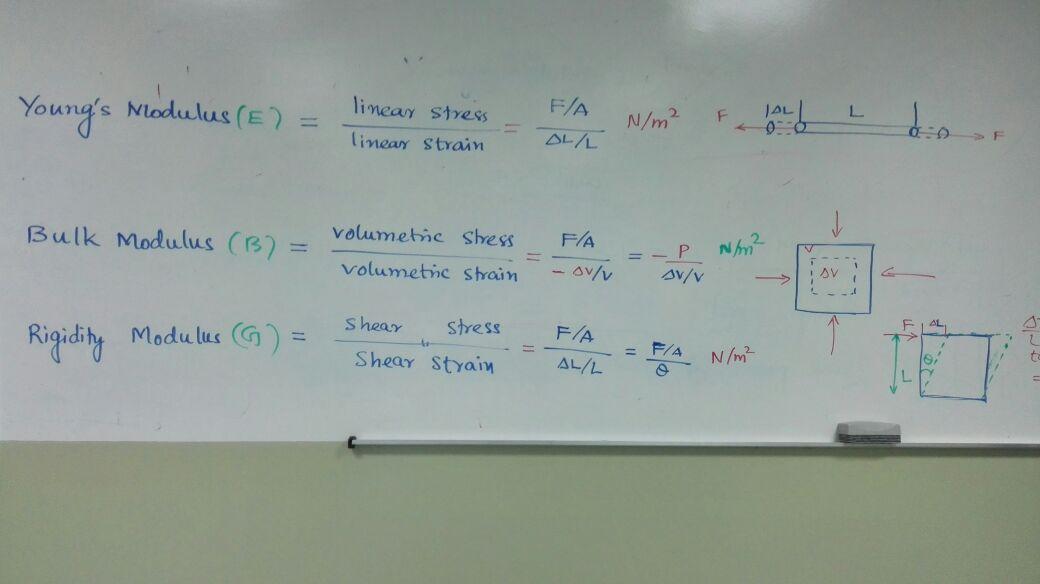 Young's Modulus (E) = linear stress / linear strain = F/A / ΔL/L N/m²
F ΔL L F
Bulk Modulus (B) = volumetric stress / volumetric strain = F/A / - ΔV/V = - P / ΔV/V N/m²
V
ΔV
Rigidity Modulus (G) = Shear stress / Shear Strain = F/A / ΔL/L = F/A / θ N/m²
F ΔL
θ
L